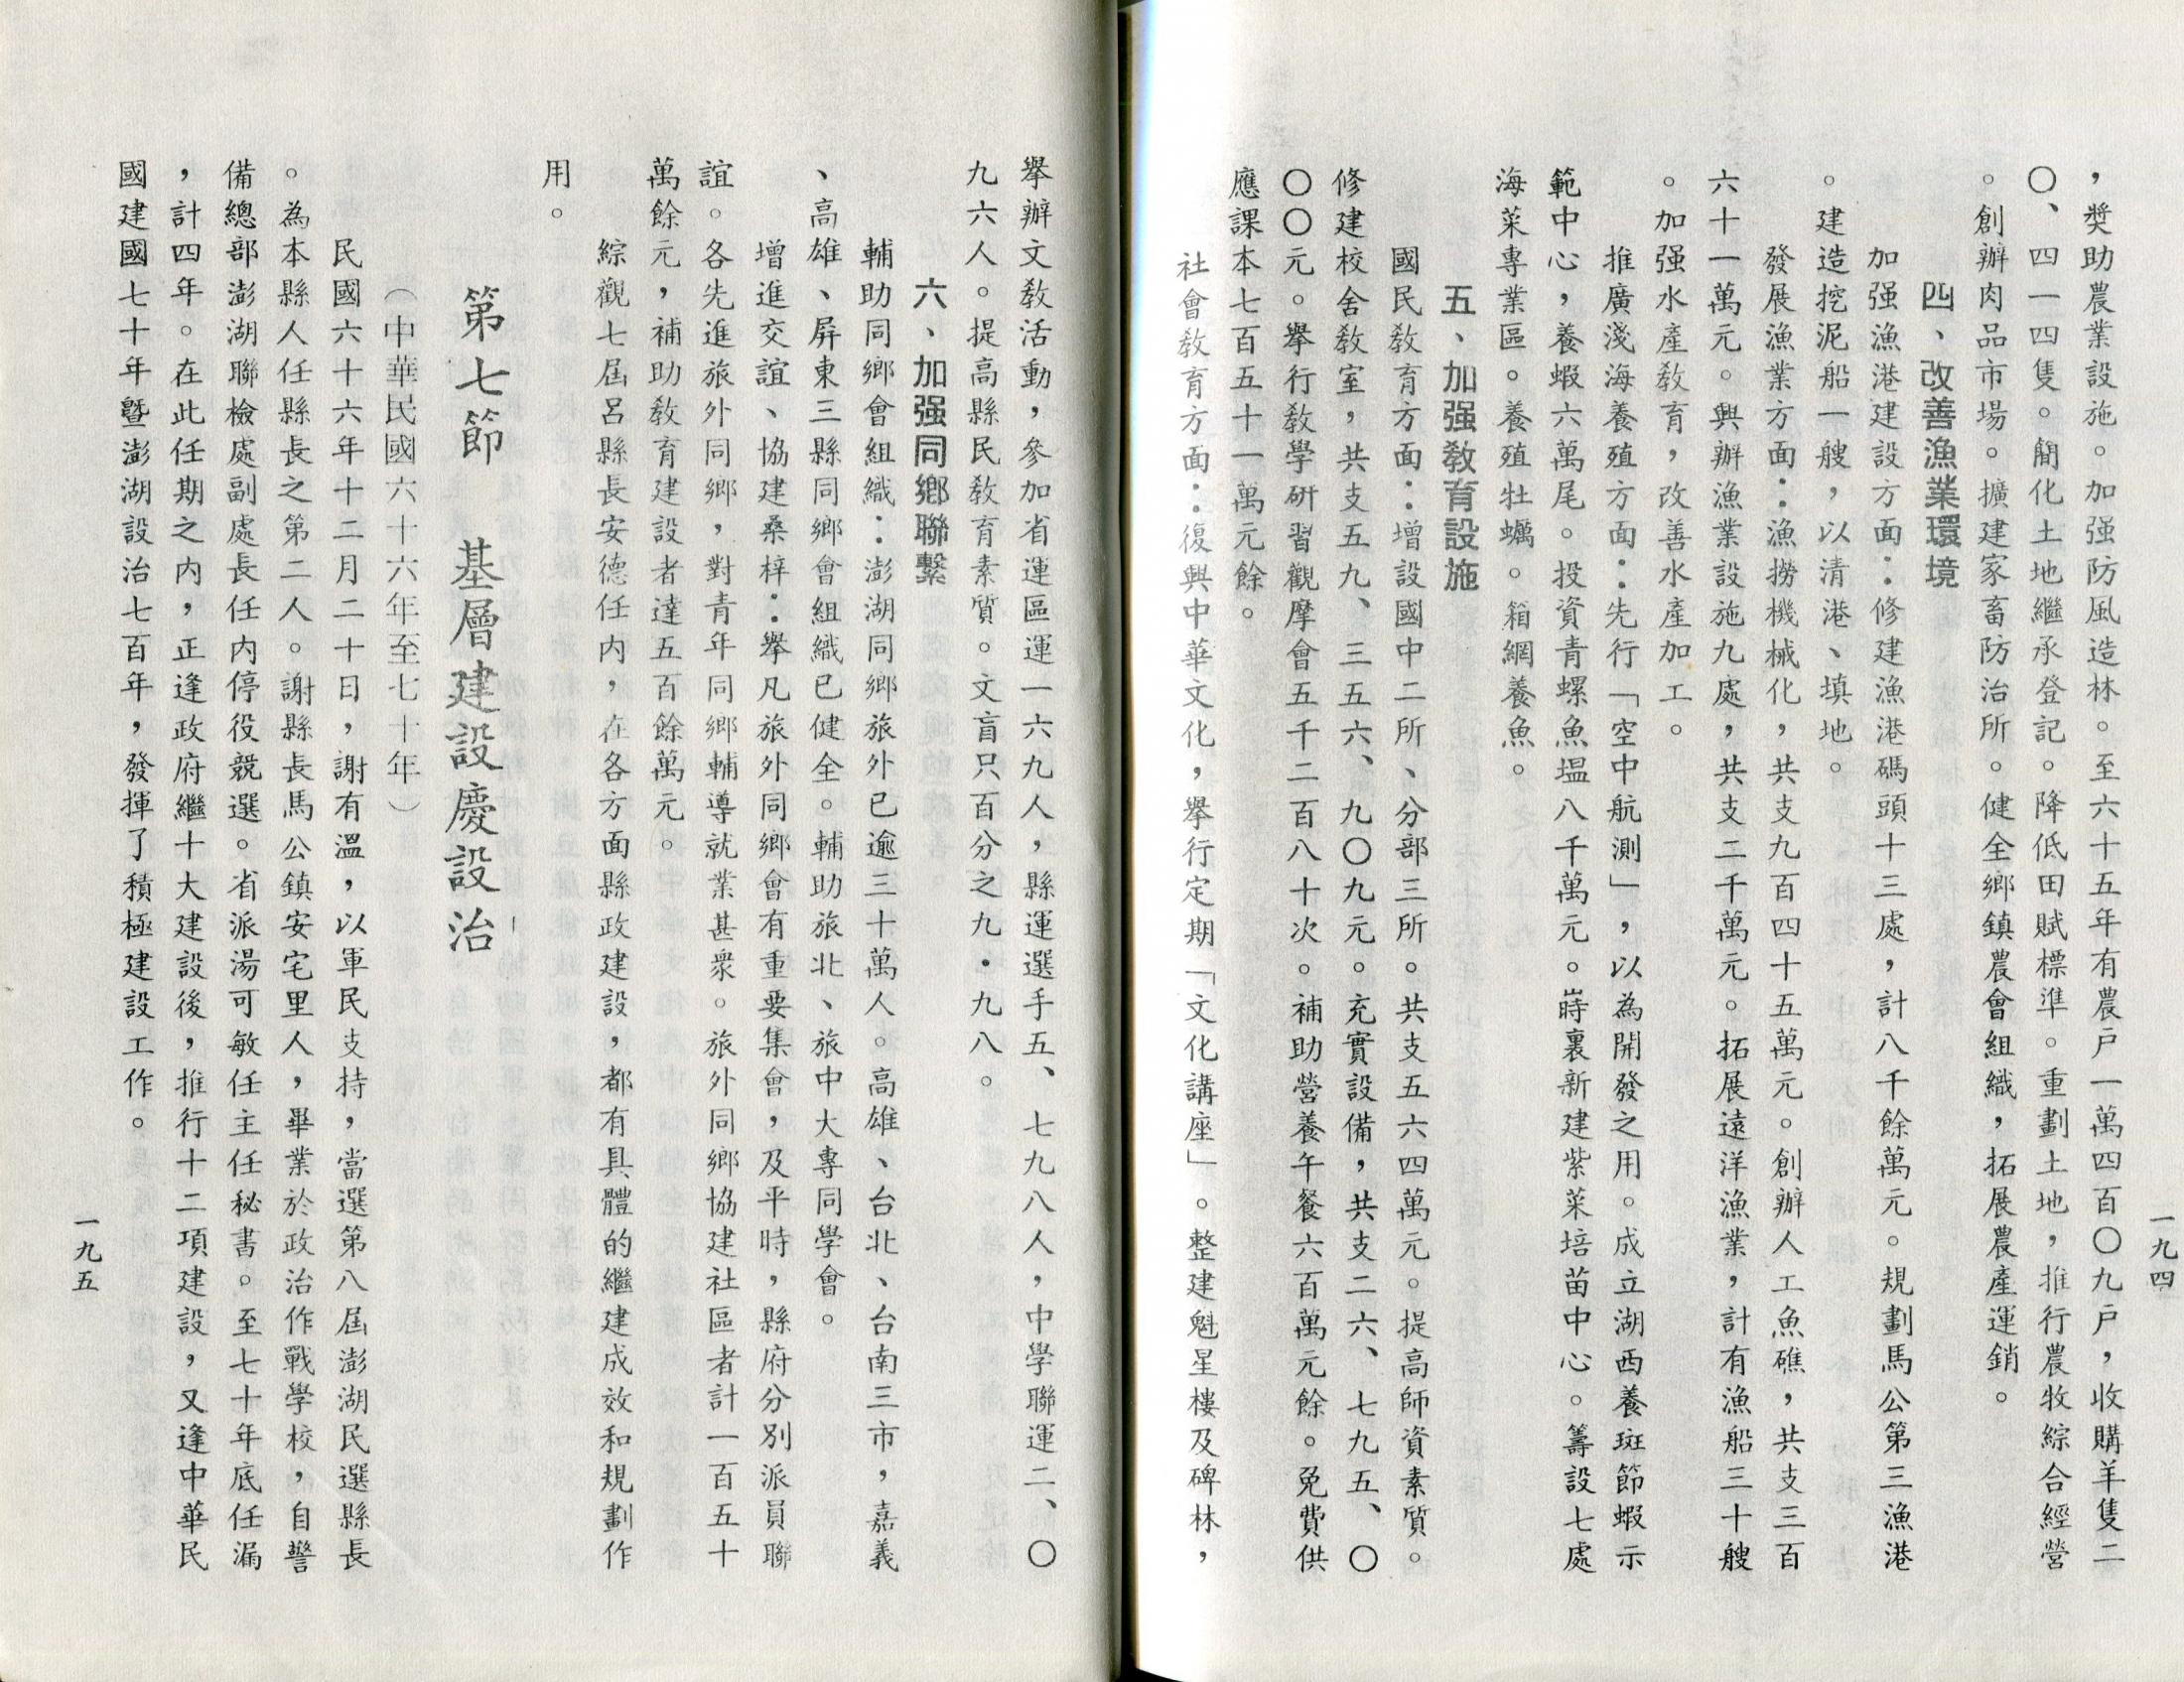 ，獎助農業設施。加强防風造林。至六十五年有農戶一萬四百〇九戶，收購羊隻二
〇、四一四隻。簡化土地繼承登記。降低田賦標準。重劃土地，推行農牧綜合經營
。創辦肉品市場。擴建家畜防治所。健全鄉鎮農會組織，拓展農產運銷。
四、改善漁業環境
加强漁港建設方面：修建漁港碼頭十三處，計八千餘萬元。規劃馬公第三漁港
。建造挖泥船一艘，以清港、填地。
發展漁業方面：漁撈機械化，共支九百四十五萬元。創辦人工魚礁，共支三百
六十一萬元。興辦漁業設施九處，共支二千萬元。拓展遠洋漁業，計有漁船三十艘
。加强水產敎育，改善水產加工。
推廣淺海養殖方面：先行「空中航測」，以為開發之用。成立湖西養斑節蝦示
範中心，養蝦六萬尾。投資青螺魚塭八千萬元。嵵裏新建紫菜培苗中心。籌設七處
海菜專業區。養殖牡蠣。箱網養魚。
五、加强敎育設施
國民敎育方面：增設國中二所、分部三所。共支五六四萬元。提高師資素質。
修建校舍敎室，共支五九、三五六、九〇九元。充實設備，共支二六、七九五、〇
〇〇元。舉行敎學研習觀摩會五千二百八十次。補助營養午餐六百萬元餘。免費供
應課本七百五十一萬元餘。
社會敎育方面：復興中華文化，舉行定期「文化講座」。整建魁星樓及碑林，
一九四
舉辦文敎活動，參加省運區運一六九人，縣運選手五、七九八人，中學聯運二、〇
九六人。提高縣民敎育素質。文盲只百分之九・九八。
六、加强同鄉聯繫
輔助同鄉會組織：澎湖同鄉旅外已逾三十萬人。高雄、台北、台南三市，嘉義
、高雄、屏東三縣同鄉會組織已健全。輔助旅北、旅中大專同學會。
增進交誼、協建桑梓：舉凡旅外同鄉會有重要集會，及平時，縣府分別派員聯
誼。各先進旅外同鄉，對青年同鄉輔導就業甚衆。旅外同鄉協建社區者計一百五十
萬餘元，補助敎育建設者達五百餘萬元。
綜觀七屆呂縣長安德任内，在各方面縣政建設，都有具體的繼建成效和規劃作
用。
第七節　基層建設慶設治
（中華民國六十六年至七十年）
民國六十六年十二月二十日，謝有溫，以軍民支持，當選第八屆澎湖民選縣長
。為本縣人任縣長之第二人。謝縣長馬公鎮安宅里人，畢業於政治作戰學校，自警
備總部澎湖聯檢處副處長任内停役競選。省派湯可敏任主任秘書。至七十年底任漏
，計四年。在此任期之内，正逢政府繼十大建設後，推行十二項建設，又逢中華民
國建國七十年曁澎湖設治七百年，發揮了積極建設工作。
一九五